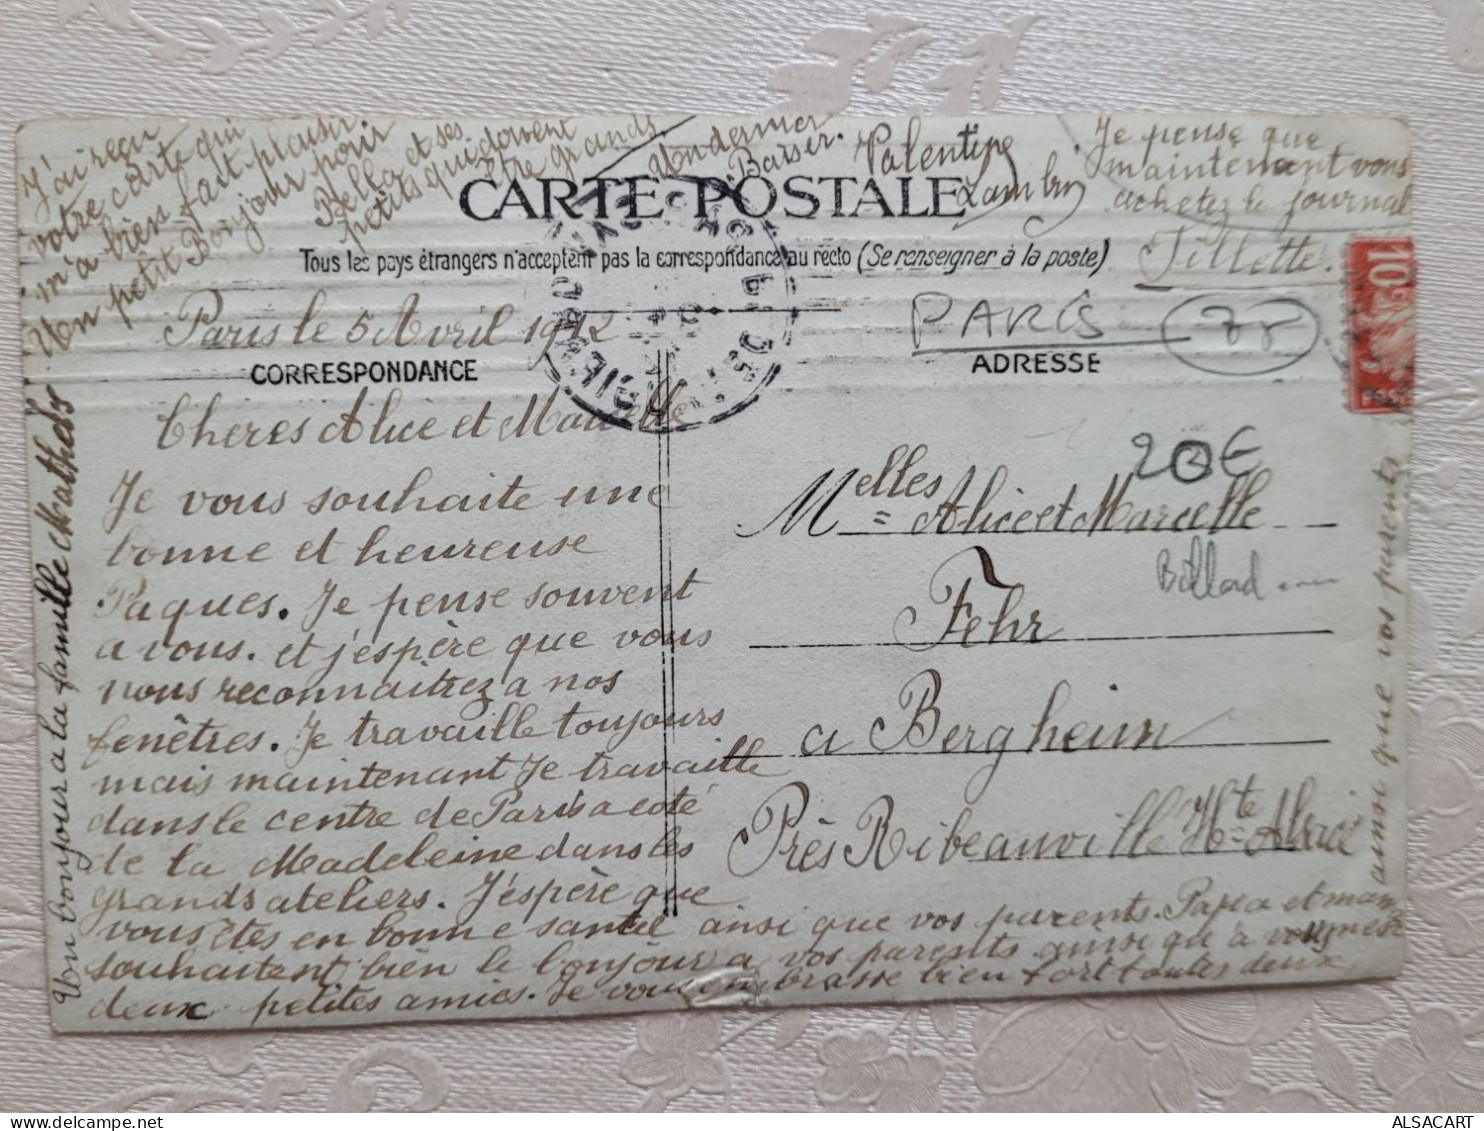 J'ai reçu
votre carte qui
m'a bien fait plaisir.
Un petit Bonjour pour
Bella et ses
petits qui doivent
être grands.
Un dernier
Baiser.
Valentine
Je pense que
maintenant vous
achetez le journal
Fillette.
CARTE POSTALE
Tous les pays étrangers n'acceptent pas la correspondance au recto (Se renseigner à la poste)
Paris le 5 Avril 1912
CORRESPONDANCE
Cheres Alice et Marcelle
Je vous souhaite une
bonne et heureuse
Paques. Je pense souvent
a vous. et j'espère que vous
nous reconnaitrez a nos
fenêtres. Je travaille toujours
mais maintenant Je travaille
dans le centre de Paris a coté
de la Madeleine dans les
grands ateliers. J'espère que
vous êtes en bonne santé ainsi que vos parents. Papa et maman
souhaitent bien le bonjour a vos parents ainsi qu'à vous mes
deux petites amies. Je vous embrasse bien fort toutes deux
ainsi que vos parents
Un bonjour a la famille Mathis
PARIS
ADRESSE
10
20€
Melles Alice et Marcelle
Billard
Fehr
a Bergheim
Près Ribeauville Hte Alsace
ALSACART